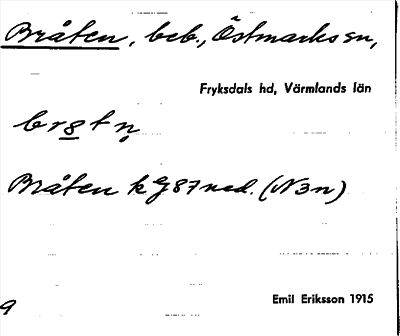 Bråten, beb., Östmarks sn,
Fryksdals hd, Värmlands län
br8tṇ
Bråten kG87ned. (N3n)
Emil Eriksson 1915
9